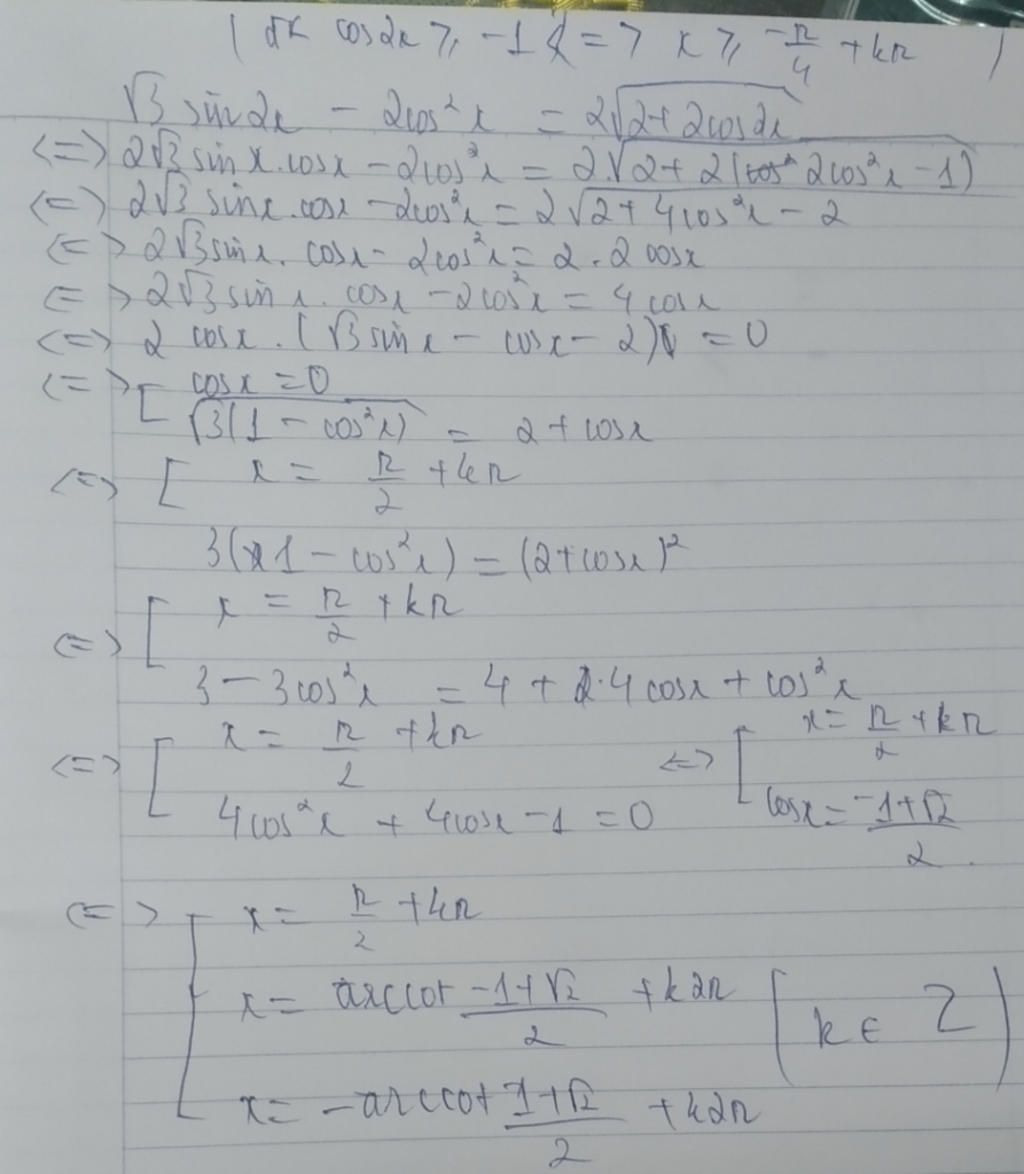 ( đk cos2x ⩾ -1 <=> x ⩾ -π/4 + kπ )
√3 sin2x - 2cos²x = 2√(2+2cos2x)
<=> 2√3 sin x.cosx - 2cos²x = 2√(2+2(2cos²x - 1))
<=> 2√3 sinx.cosx - 2cos²x = 2√(2+4cos²x - 2)
<=> 2√3sinx. cosx - 2cos²x = 2.2cosx
<=> 2√3sin x. cosx - 2cos²x = 4cosx
<=> 2 cosx. (√3 sin x - cosx - 2) = 0
<=> [ cosx = 0
√(3(1 - cos²x)) = 2 + cosx
<=> [ x = π/2 + kπ
3(1 - cos²x) = (2+cosx)²
<=> [ x = π/2 + kπ
3 - 3cos²x = 4 + 4cosx + cos²x
<=> [ x = π/2 + kπ <=> [ x = π/2 + kπ
4cos²x + 4cosx - 1 = 0 cosx = (-1+√2)/2
<=> [ x = π/2 + kπ
x = arccot (-1+√2)/2 + k2π ( k ∈ Z )
x = -arccot (1+√2)/2 + k2π